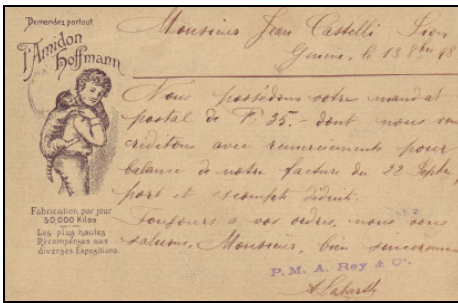 Demandez partout
l'Amidon
Hoffmann
Fabrication par jour
50,000 Kilos
Les plus hautes
Récompenses aux
diverses Expositions.
Monsieur Jean Castelli Sion
Genève, le 13 8bre 98
Nous possédons votre mandat
postal de Fr 35.- dont nous vous
créditons avec remerciements pour
balance de notre facture du 22 Septbre
port et escompte déduit.
Toujours à vos ordres, nous vous
saluons, Monsieur, bien sincèrement
P. M. A. Rey & Co.